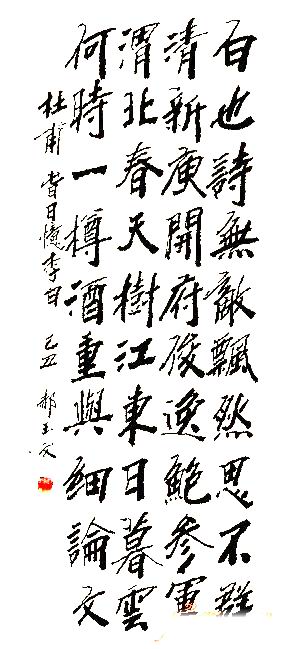 白也詩無敵飄然思不群
清新庾開府俊逸鮑參軍
渭北春天樹江東日暮雲
何時一樽酒重與細論文
杜甫 春日憶李白 己丑 郝